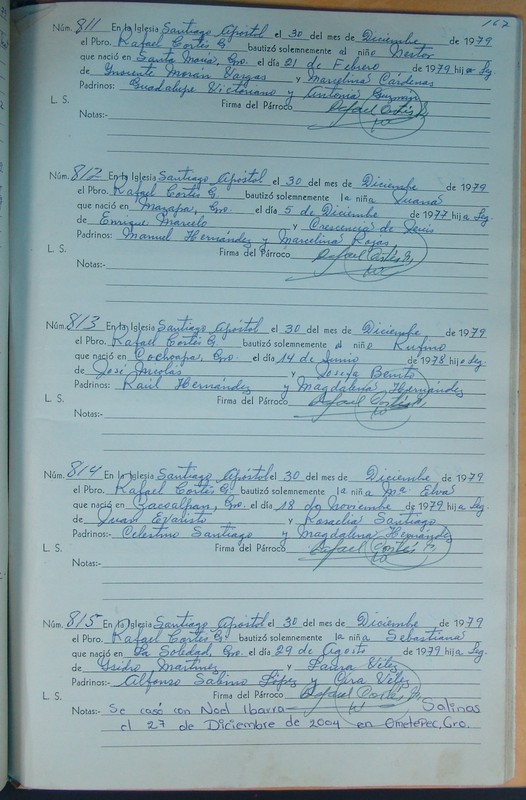 162
Núm. 811 En la Iglesia Santiago Apóstol el 30 del mes de Diciembre de 1979
el Pbro. Rafael Cortés G. bautizó solemnemente al niño Nestor
que nació en Santa María, Gro. el día 01 de Febrero de 1979 hijo Leg.
de Inocente Morán Vargas y Marcelina Cardenas
Padrinos: Guadalupe Victoriano y Antonia Guzman
L. S. Firma del Párroco Rafael Cortés G.
Notas:-
Núm. 812 En la Iglesia Santiago Apóstol el 30 del mes de Diciembre de 1979
el Pbro. Rafael Cortés G. bautizó solemnemente la niña Juana
que nació en Mazapa, Gro. el día 5 de Diciembre de 1977 hija Leg.
de Enrique Marcelo y Crescencia de Jesús
Padrinos: Manuel Hernández y Marcelina Rojas
L. S. Firma del Párroco Rafael Cortés G.
Notas:-
Núm. 813 En la Iglesia Santiago Apóstol el 30 del mes de Diciembre de 1979
el Pbro. Rafael Cortés G. bautizó solemnemente al niño Rufino
que nació en Cochoapa, Gro. el día 14 de Junio de 1978 hijo Leg.
de José Nicolás y Josefa Benito
Padrinos: Raúl Hernández y Magdalena Hernández
L. S. Firma del Párroco Rafael Cortés G.
Notas:-
Núm. 814 En la Iglesia Santiago Apóstol el 30 del mes de Diciembre de 1979
el Pbro. Rafael Cortés G. bautizó solemnemente la niña Ma. Elva
que nació en Zacoalpan, Gro. el día 18 de Noviembre de 1979 hija Leg.
de Juan Evaristo y Rosaelia Santiago
Padrinos:- Celestino Santiago y Magdalena Hernández
L. S. Firma del Párroco Rafael Cortés G.
Notas:-
Núm. 815 En la Iglesia Santiago Apóstol el 30 del mes de Diciembre de 1979
el Pbro. Rafael Cortés G. bautizó solemnemente la niña Sebastiana
que nació en La Soledad, Gro. el día 29 de Agosto de 1979 hija Leg.
de Isidro Martínez y Laura Vélez
Padrinos:- Alfonso Sabino López y Cira Vélez
L. S. Firma del Párroco Rafael Cortés G.
Notas:- Se casó con Noel Ibarra Salinas
el 27 de Diciembre de 2004 en Ometepec, Gro.